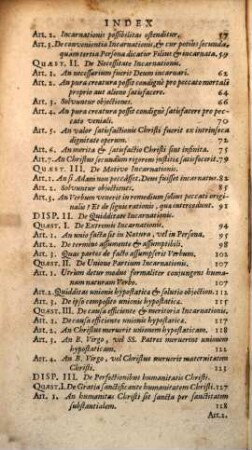 INDEX
Art. 2. Incarnationis possibilitas ostenditur. 57
Art. 3. De convenientia Incarnationis, & cur potiùs secunda,
quàm tertia Persona dicatur Filius & incarnata. 59
QUÆST. II. De Necessitate Incarnationis.
Art. 1. An necessarium fuerit Deum incarnari. 62
Art. 2. An pura creatura possit condignè pro peccato mortali
propriò aut alieno satisfacere. 64
Art. 3. Solvuntur objectiones. 66
Art. 4. An pura creatura possit condignè satisfacere pro pec-
cato veniali. 70
Art. 5. An valor satisfactionis Christi fuerit ex intrinseca
dignitate operum. 72
Art. 6. An merita & satisfactio Christi sint infinita. 75
Art. 7. An Christus secundùm rigorem justitiæ satisfecerit. 79
QUÆST. III. De Motivo Incarnationis.
Art. 1. An si Adam non peccasset, Deus fuisset incarnatus. 82
Art. 2. Solvuntur objectiones. 85
Art. 3. An Verbum venerit in remedium solius peccati origi-
nalis? Et de signis rationis, quæ intercedunt. 91
DISP. II. De Quidditate Incarnationis.
QUÆST. I. De Extremis Incarnationis. 94
Art. 1. An unio facta sit in Natura, vel in Persona. 95
Art. 2. De termino assumente & assumptibili. 98
Art. 3. Quas partes de facto assumpserit Verbum. 102
QUÆST. II. De Unione Partium Incarnationis. 107
Art. 1. Utrùm detur modus formaliter conjungens huma-
nam naturam Verbo. 107
Art. 2. Quidditas unionis hypostaticæ & solutio objection. 112
Art. 3. De ipso composito unionis hypostaticæ. 118
QUÆST. III. De causa efficiente & meritoria Incarnationis.
Art. 1. De causa efficiente unionis hypostaticæ. 118
Art. 2. An Christus meruerit unionem hypostaticam. 118
Art. 3. An B. Virgo, vel SS. Patres meruerint unionem
hypostaticam. 121
Art. 4. An B. Virgo, vel Christus meruerit maternitatem
Christi. 123
DISP. III. De Perfectionibus humanitatis Christi.
QUÆST. I. De Gratia sanctificante humanitatem Christi. 127
Art. 1. An humanitas Christi sit sancta per sanctitatem
substantialem. 128
Art. 2.